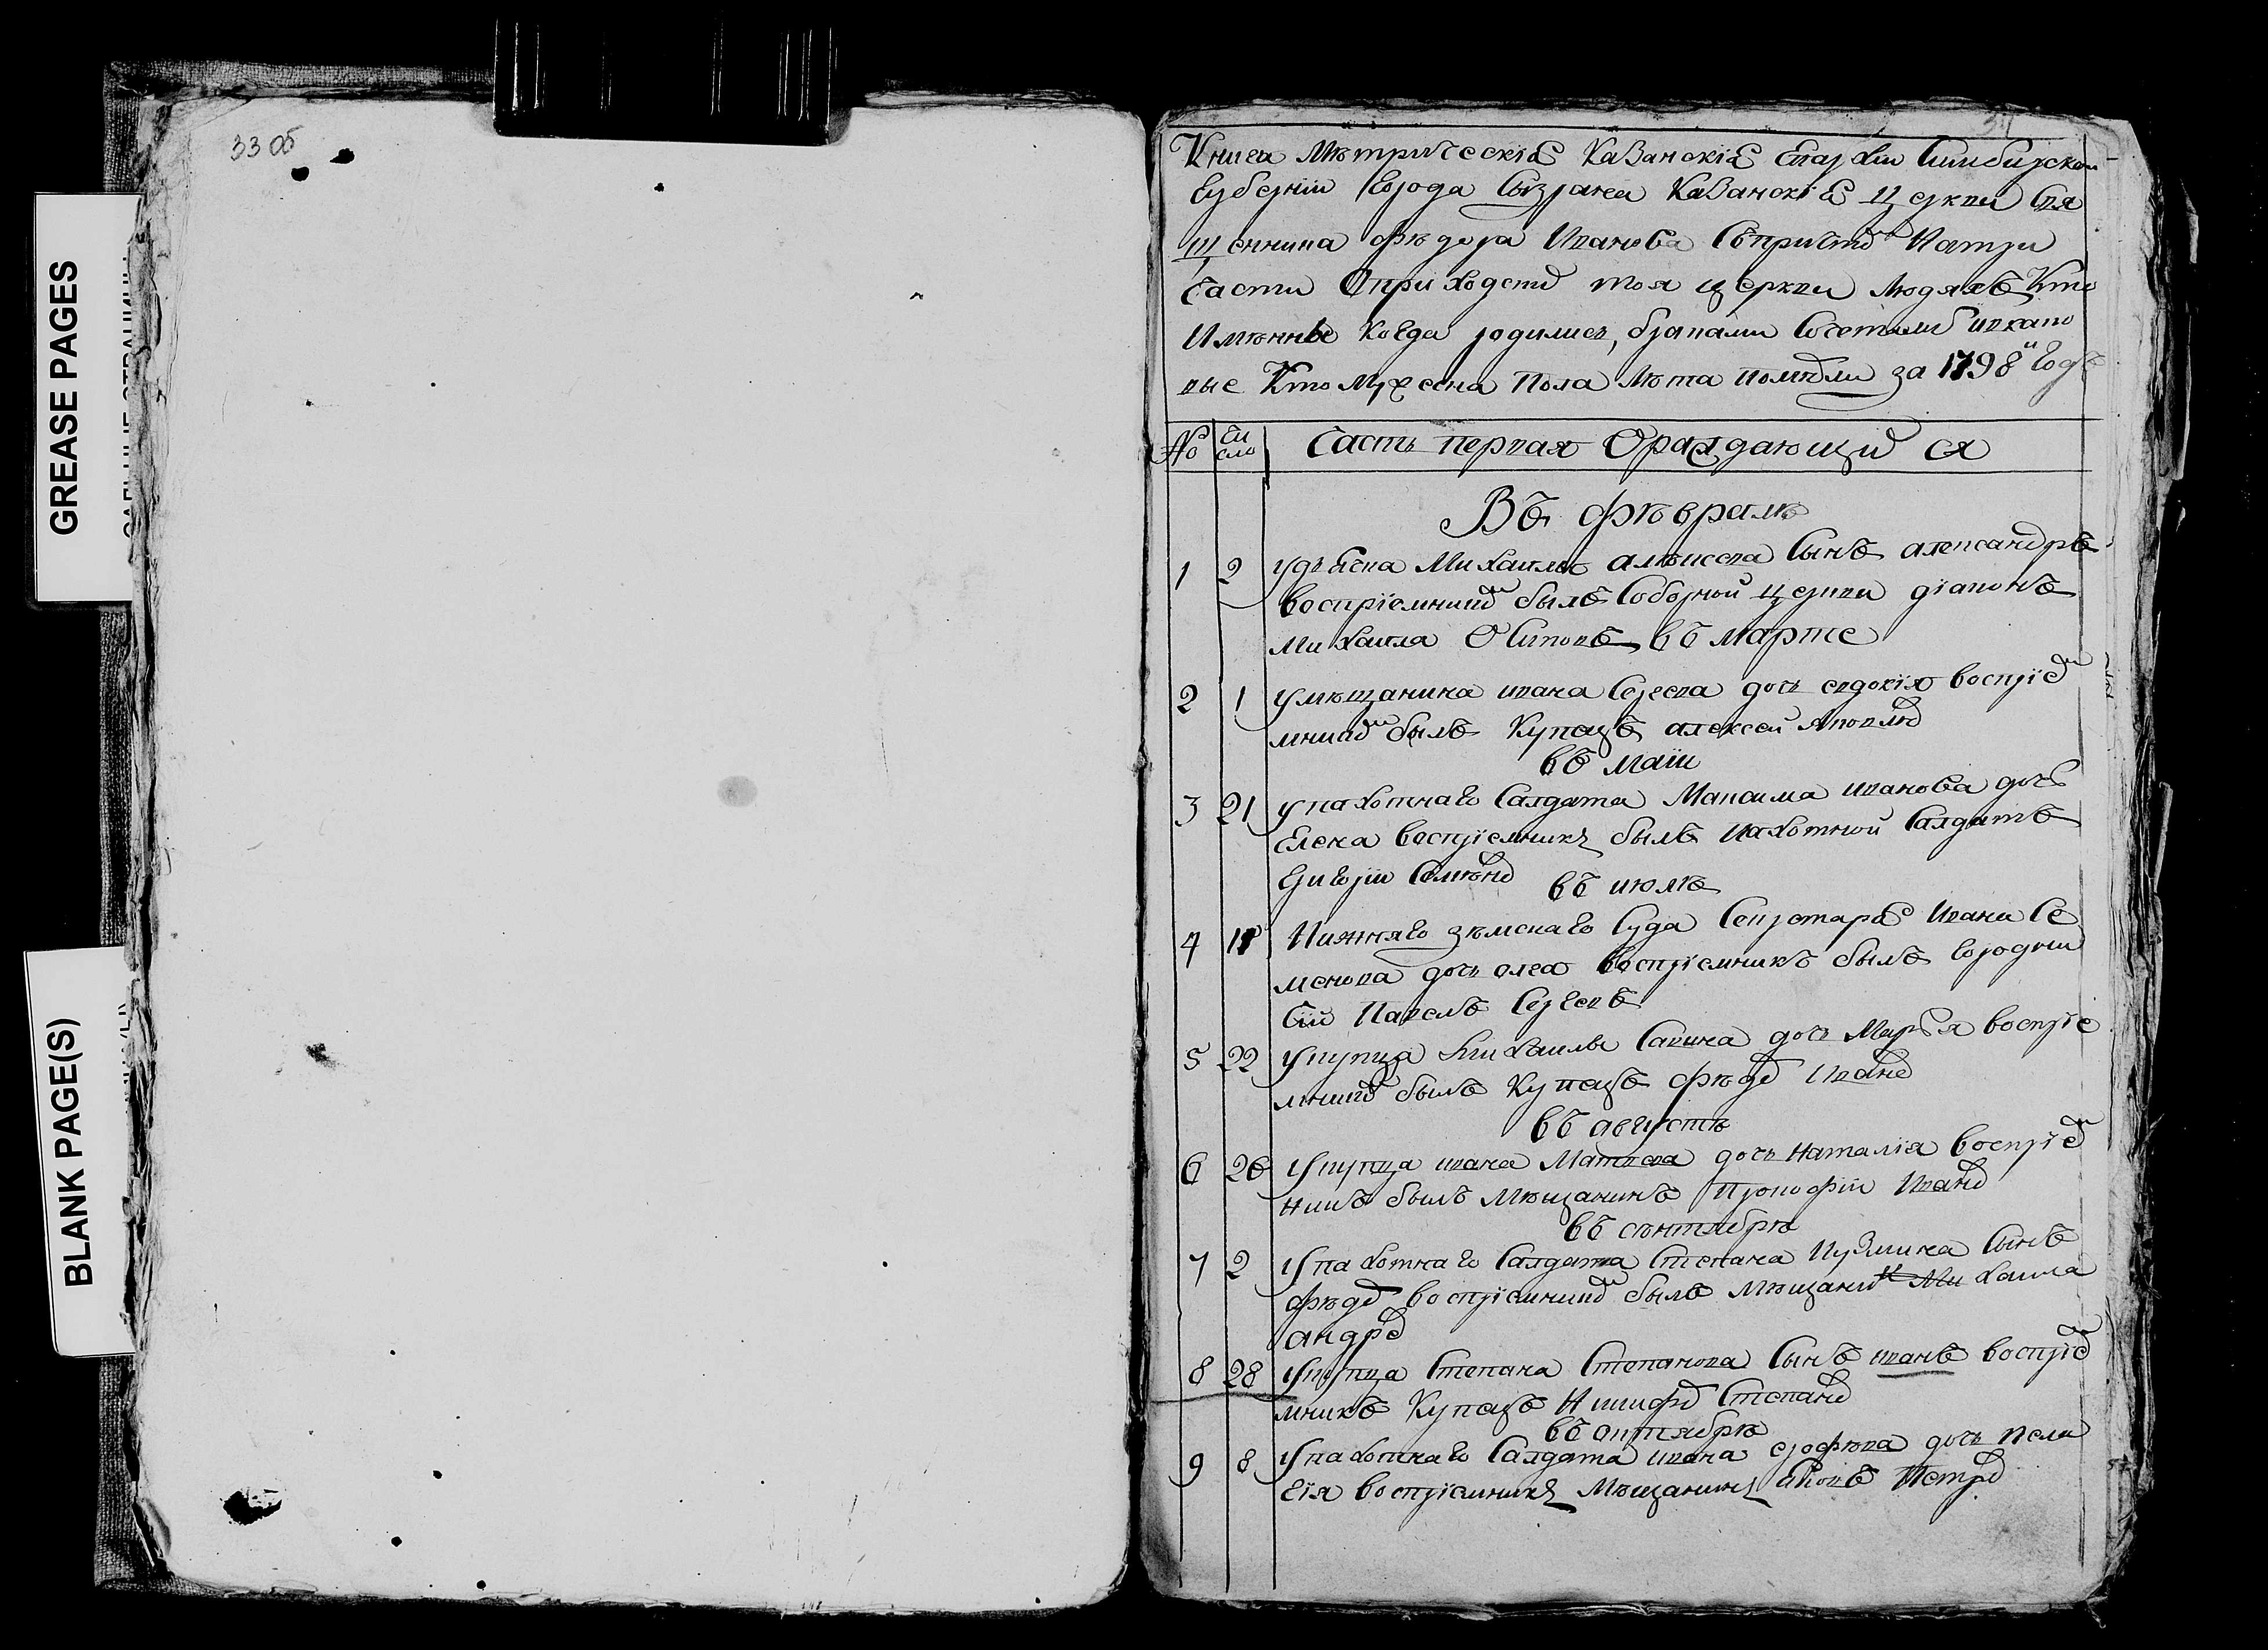 GREASE PAGES
BLANK PAGE(S)
33 об
Книга Мѣтрическия Казанския Епархии Симбирской
Губернии города Сызрана Казанския церкви Свя
щенника Фѣдора Иванова Съпричтомъ Натри
Части Оприходствѣ тоя церкви людяхъ Кто
Имѣнны Когда родились, браками Сочетались
вые Кто мужеска Пола лѣта помѣрли за 1798й Годъ
№ Чи сло Часть первая Ораждающихся
Въ фѣвралѣ
1 2 удьячка Михаила алѣксева Сынъ александръ
воспріемникомъ былъ Соборной церкви діаконъ
Михаила Осиповъ въ марте
2 1 умѣщанина ивана Сергева дочь евдокія воспріе
мникомъ былъ Купецъ алексей Яковлевъ
въ маіи
3 21 упахотнаго Салдата Максима иванова дочь
Елена воспріемникъ былъ пахотной Салдатъ
Григоріи Семѣновъ въ июлѣ
4 18 Нижняго зѣмскаго Суда Секретаря Ивана Се
менова дочь олга воспріемникъ былъ городни
чій Павелъ Сергевъ
5 22 укупца Михаилы Савина дочь Марья воспріе
мникомъ былъ Купецъ фѣдоръ Ивановъ
въ августѣ
6 26 укупца ивана Матвева дочь наталія воспріе
никъ былъ мѣщанинъ прокофіи Ивановъ
въ сѣнтябрѣ
7 2 упахотнаго Салдата Степана Кузмина Сынъ
фѣдоръ воспріемникомъ былъ мѣщанинъ Михаила
андреевъ
8 28 укупца Степана Степанова Сынъ иванъ воспріе
мникъ Купецъ Никифоръ Степановъ
въ октябрѣ
9 8 упахотнаго Салдата ивана ерофѣева дочь пела
гія воспріемникъ Мѣщанинъ яковъ Петровъ